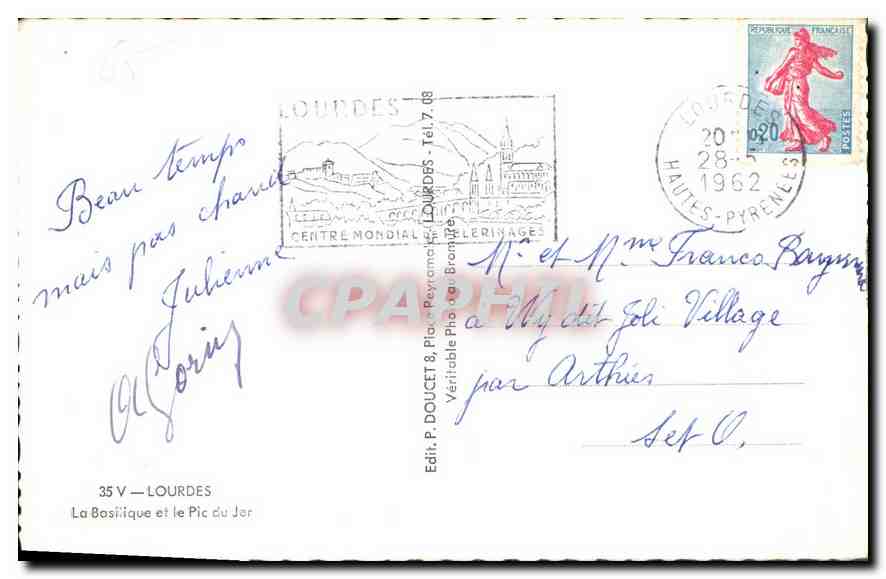 Beau temps
mais pas chaud
Julienne
35 V — LOURDES
La Basilique et le Pic du Jer
LOURDES
CENTRE MONDIAL DE PELERINAGES
Edit. P. DOUCET 8, Place Peyramale, LOURDES - Tél. 7.08
Véritable Photo au Bromure
REPUBLIQUE FRANCAISE
0,20
POSTES
LOURDES
28-
1962
HAUTES-PYRENEES
Mr. et Mme Franco
à Wy dit Joli Village
par Arthies
Set O.
CPAPHIL